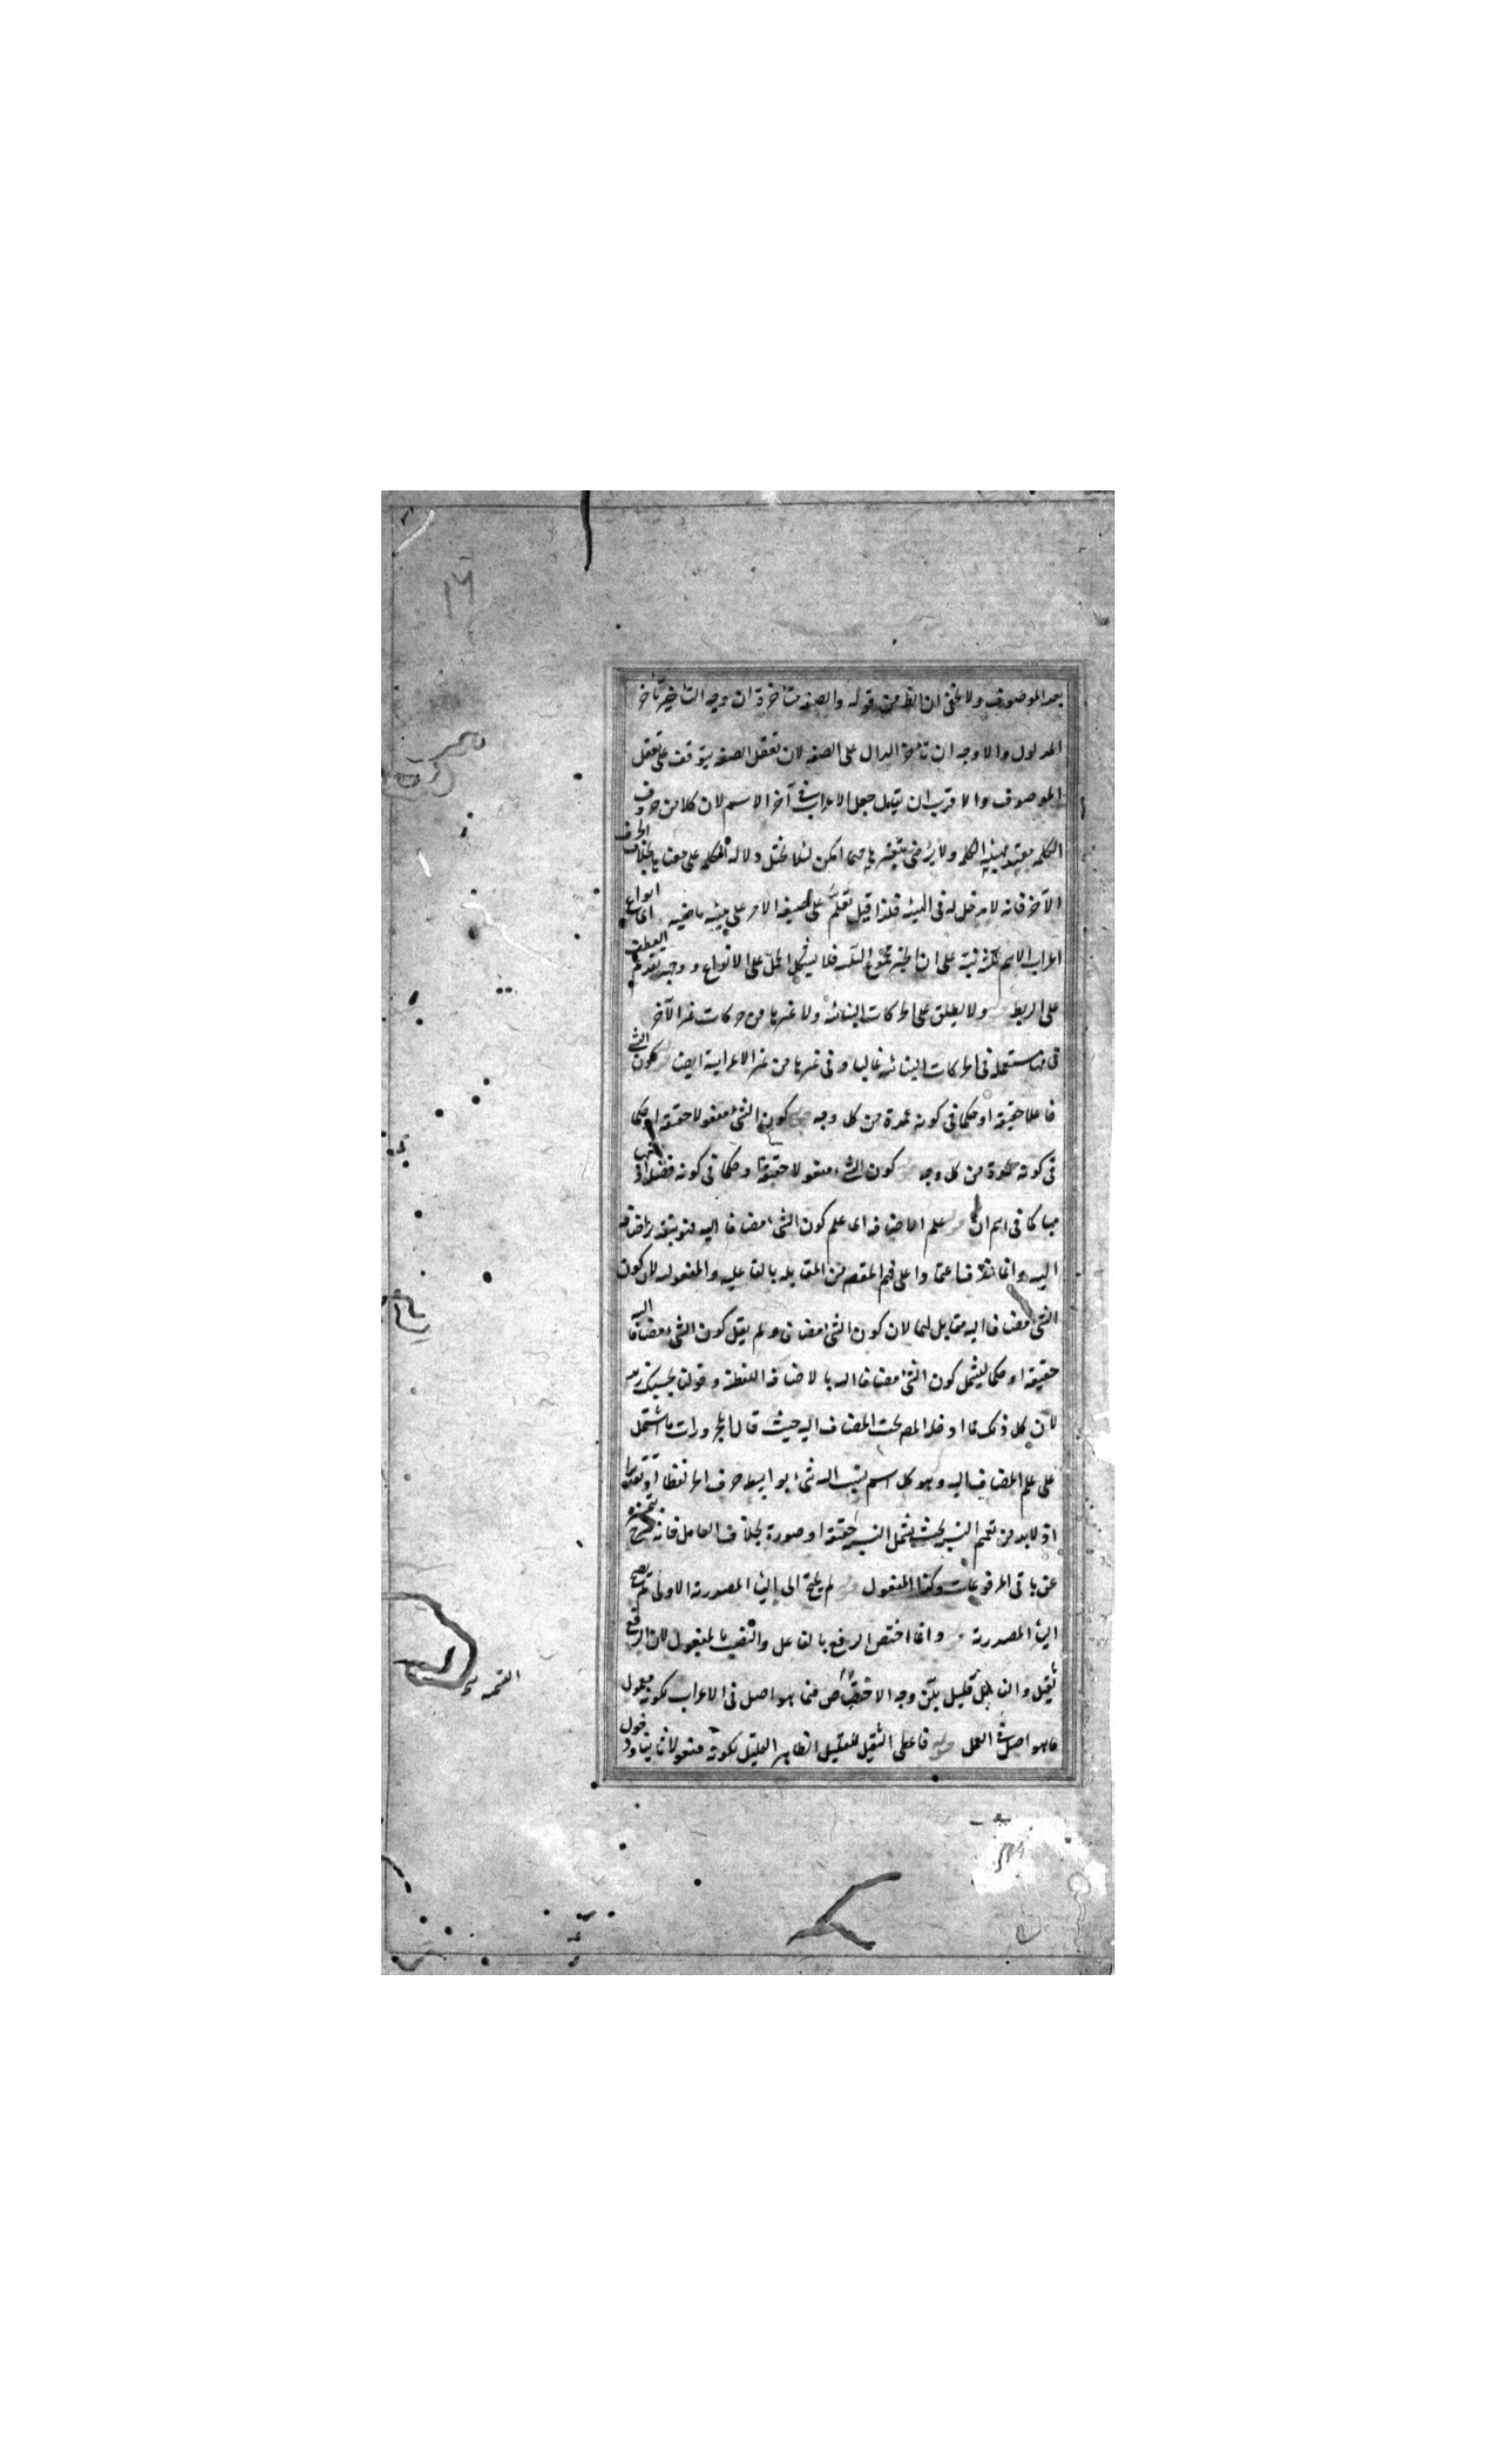 ١٦
بعد الموصوف ولا يخفى ان الظ من قوله والصفة متأخرة ان وجه التأخير تأخر
المدلول والاوجه ان تأخر الدال على الصفة لان تعقل الصفة يتوقف على تعقل
الموصوف والاقرب ان يقال جعل الاعراب في آخر الاسم لان كلا من حروف
الكلمة مقيد بهيئة الكلمة ولا يرضى بتغييرها مهما امكن لئلا يختل دلالة الكلمة على معنا بخلاف الحرف
الآخر فانه لا مدخل له في الهيئة فلذا قيل تعلم على صيغة الامر على هيئة ماضيه اى انواع
اعراب الاسم ثلثة نبه على ان الخبر مجموع الثلثة فلا يشكل الحمل على الانواع ووجه تقدم العطف
على الربط ولا يطلق على الحركات البنائية ولا غيرها من حركات غير الآخر
فى مستعملة فى الحركات البنائية غالبا وفى غيرها من غير الاعرابية ايضا كون الشئ
فاعلا حقيقة او حكما فى كونه عمدة من كل وجه كون الشئ مفعولا حقيقة او حكما
فى كونه عمدة من كل وجه كون الشئ مفعولا حقيقة او حكما فى كونه فضلة
كما فى اسم ان علم الاضافة اى علم كون الشئ مضافا اليه
اليه وانما اعتمادا على فهم المقصود من المقابلة بالفاعلية والمفعولية لان كون
الشئ مضافا اليه مقابل لهما لان كون الشئ مضافا ولم يقل كون الشئ مضافا اليه
حقيقة او حكما ليشمل كون الشئ مضافا اليه بالاضافة اللفظية وقولنا بحسبك زيد
لان كل ذلك مما ادخله المص تحت المضاف اليه حيث قال المجرورات ما اشتمل
على علم المضاف اليه وهو كل اسم نسب اليه شئ بواسطة حرف الجر لفظا او تقديرا
اذ لا بد من تعميم النسبة بحيث يشمل النسبة حقيقة او صورة بخلاف الفاعل فانه
عن باقى المرفوعات وكذا المفعول لم يحتج الى الياء المصدرية الاولى
الياء المصدرية وانما اختص الرفع بالفاعل والنصب بالمفعول لان الرفع
ثقيل والفاعل قليل بين وجه الاختصاص فيما هو اصل فى الاعراب لكونه معمول
ما هو اصل فى العمل فاعطى الثقيل للقليل الظاهر القليل لكونه مفعولا ثانيا